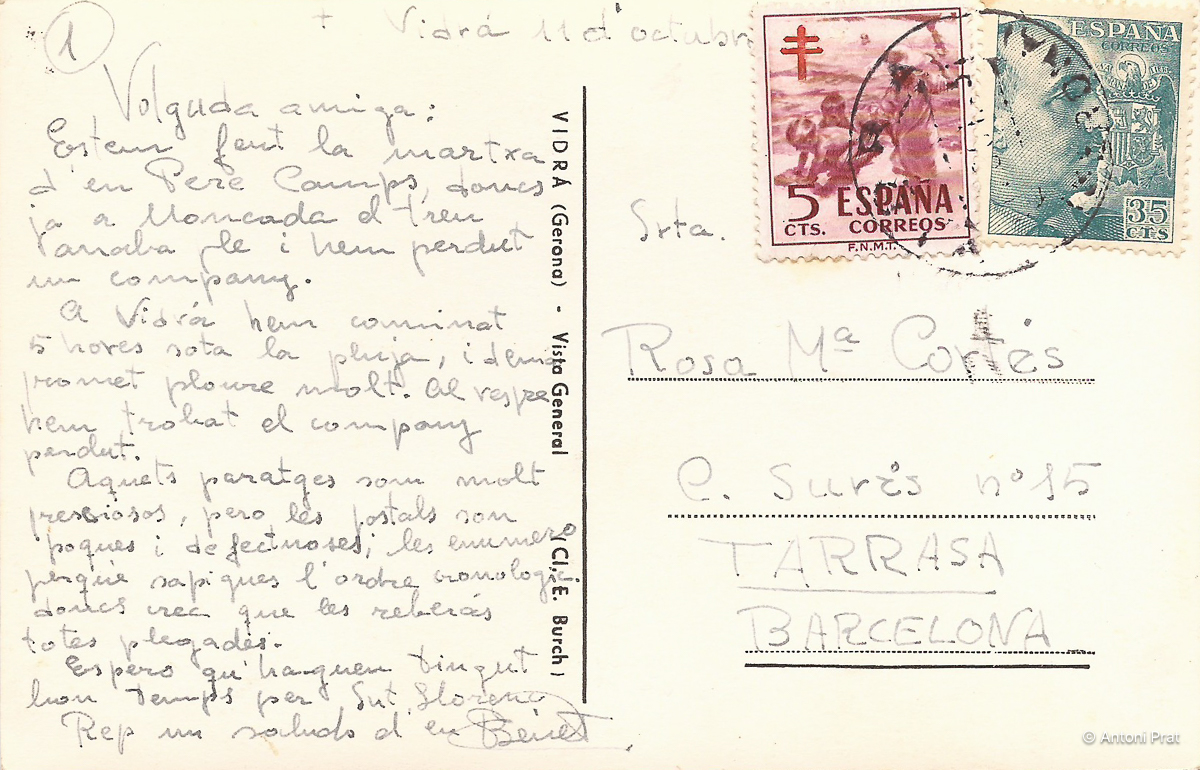 1
Vidrá 11 d'octubre
Volguda amiga:
Estem fent la martxa
d'en Pere Camps, doncs
ja a Moncada el tren
tardamde i hem perdut
un company.
A Vidrá hem caminat
5 hores sota la pluja, i demá
promet ploure molt. Al vespre
hem trobat el company
perdut.
Aquets paratges som molt
presciosos, pero les postals son
poques i defectuoses; les enumero
perque sapigues l'ordre cronologic
doncs crec que les reberás
totes plegades.
Espero qu'haguen tingut
bon temps per Snt. Llorenç
Rep un saludo d'en Benet
VIDRÁ (Gerona) - Vista General (Cl. E. Burch)
5 ESPAÑA
CTS. CORREOS
F.N.M.T.
ESPAÑA
CORREOS
35
CTS
Srta.
Rosa Mª Cortés
C. Surés nº 15
TARRASA
BARCELONA
© Antoni Prat